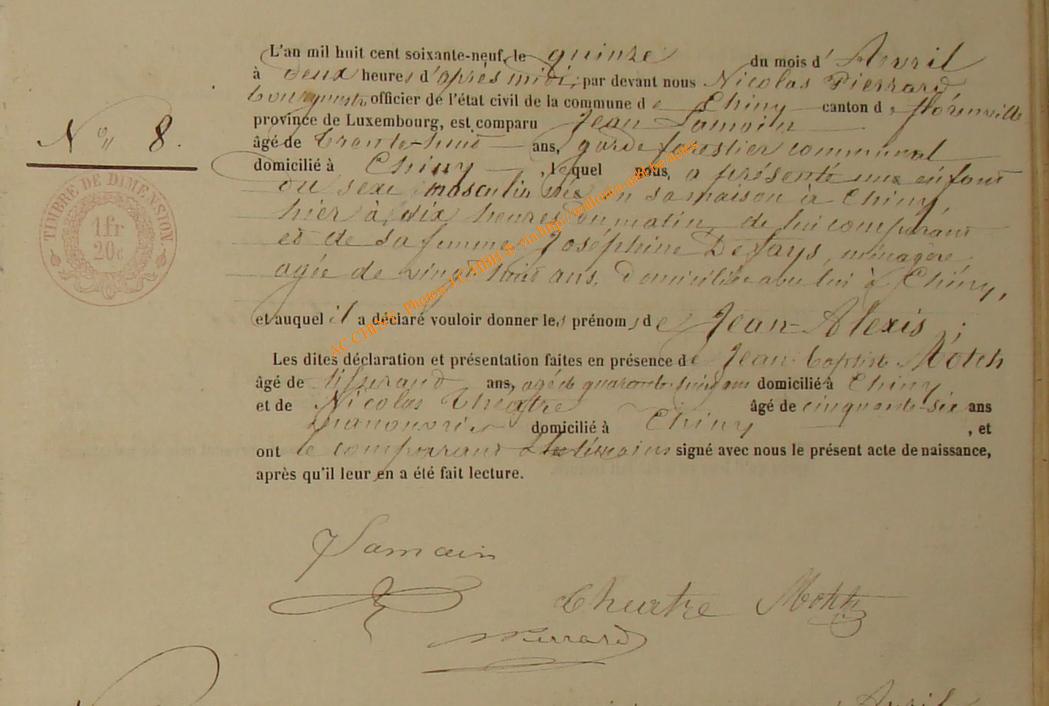 L'an mil huit cent soixante-neuf, le quinze du mois d'Avril
à deux heures d'après midi, par devant nous Nicolas Pierrard
bourgmestre officier de l'état civil de la commune de Chiny canton de florenville
province de Luxembourg, est comparu Jean Lamain
N° 8.
âgé de trente-huit ans, garde forestier communal
domicilié à Chiny, lequel nous, a présenté un enfant
du sexe masculin né en sa maison à Chiny,
hier à dix heures du matin, de lui comparant
et de sa femme Joséphine Defays, ménagère,
agée de vingt huit ans, domiciliée avec lui à Chiny,
et auquel il a déclaré vouloir donner les prénoms de Jean-Alexis;
Les dites déclaration et présentation faites en présence de Jean-baptiste Motch
âgé de tisserand ans, agé de quarante huit ans domicilié à Chiny
et de Nicolas Théatre âgé de cinquante-six ans
manouvrier domicilié à Chiny, et
ont le comparant & les témoins signé avec nous le présent acte de naissance,
après qu'il leur en a été fait lecture.
TIMBRE DE DIMENSION
1fr
20c
JLamain
Theatre Motch
NPierrard
Avril